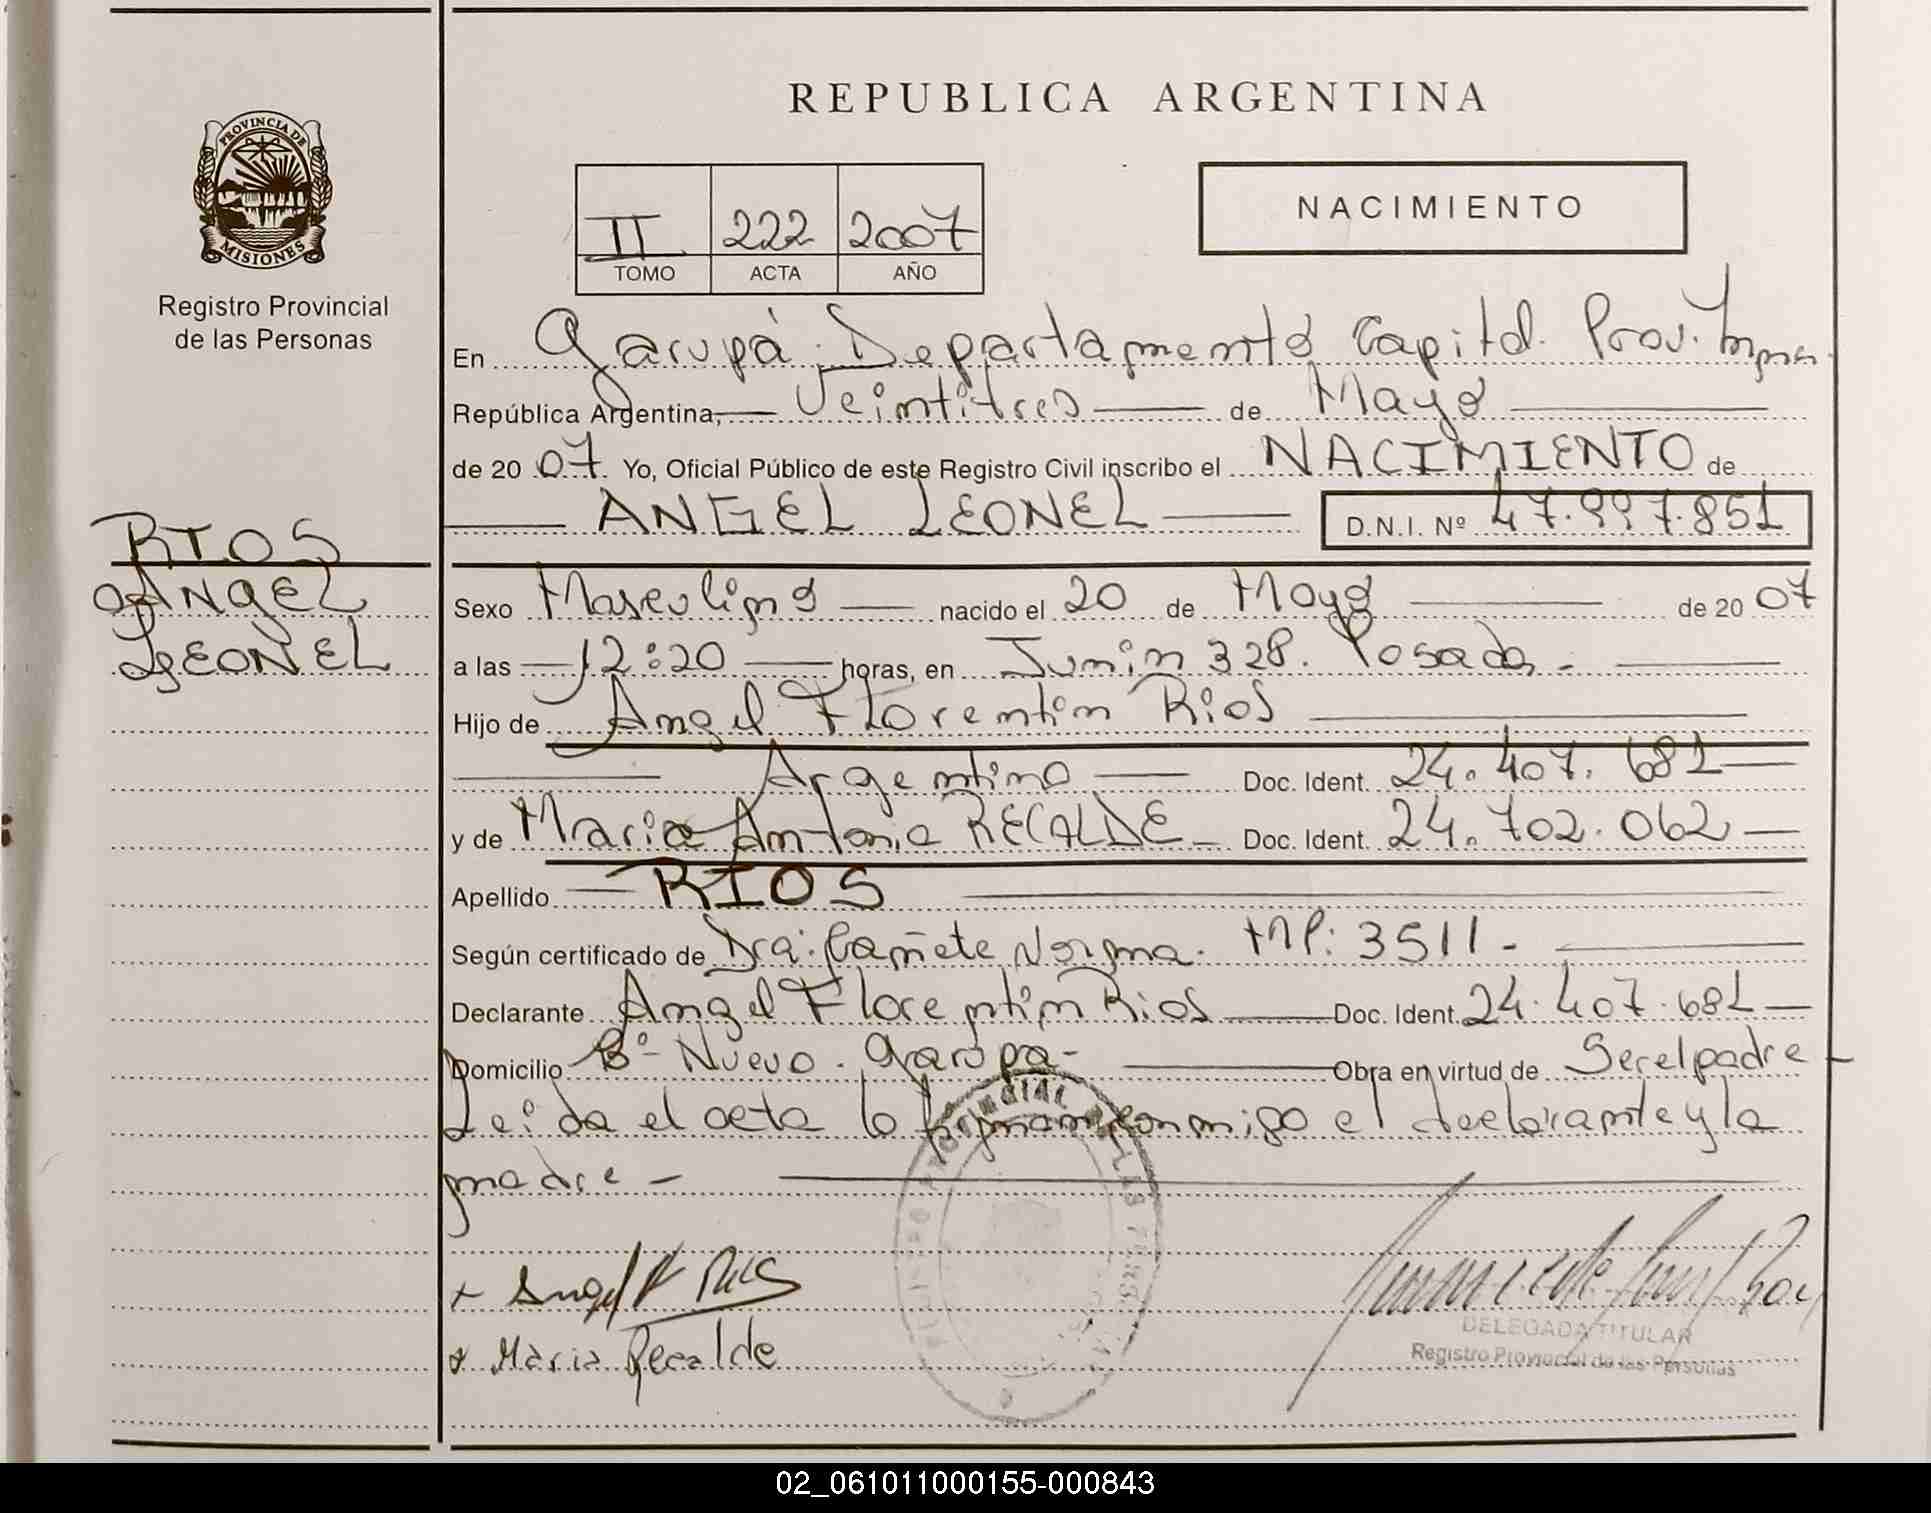 REPUBLICA ARGENTINA
PROVINCIA DE
MISIONES
Registro Provincial
de las Personas
NACIMIENTO
II 222 2007
TOMO ACTA AÑO
En Garupá. Departamento Capital. Prov.
República Argentina, Veintitres de Mayo
de 20 07. Yo, Oficial Público de este Registro Civil inscribo el NACIMIENTO de
ANGEL LEONEL D.N.I. Nº 47.997.851
RIOS
ANGEL
LEONEL
Sexo Masculino nacido el 20 de Mayo de 20 07
a las 12:20 horas, en Junin 328. Posadas.
Hijo de Angel Florentin Rios
Argentino Doc. Ident. 24.407.681
y de Maria Antonia RECALDE Doc. Ident. 24.702.062
Apellido RIOS
Según certificado de Dra. Cañete Norma. MP: 3511-
Declarante Angel Florentin Rios Doc. Ident. 24.407.681
Domicilio Bº- Nuevo. Garupa- Obra en virtud de Ser el padre
Leida el acta lo firman conmigo el declarante y la
madre -
+ Angel F Rios
+ Maria Recalde
DELEGADA TITULAR
Registro Provincial de las Personas
02_061011000155-000843